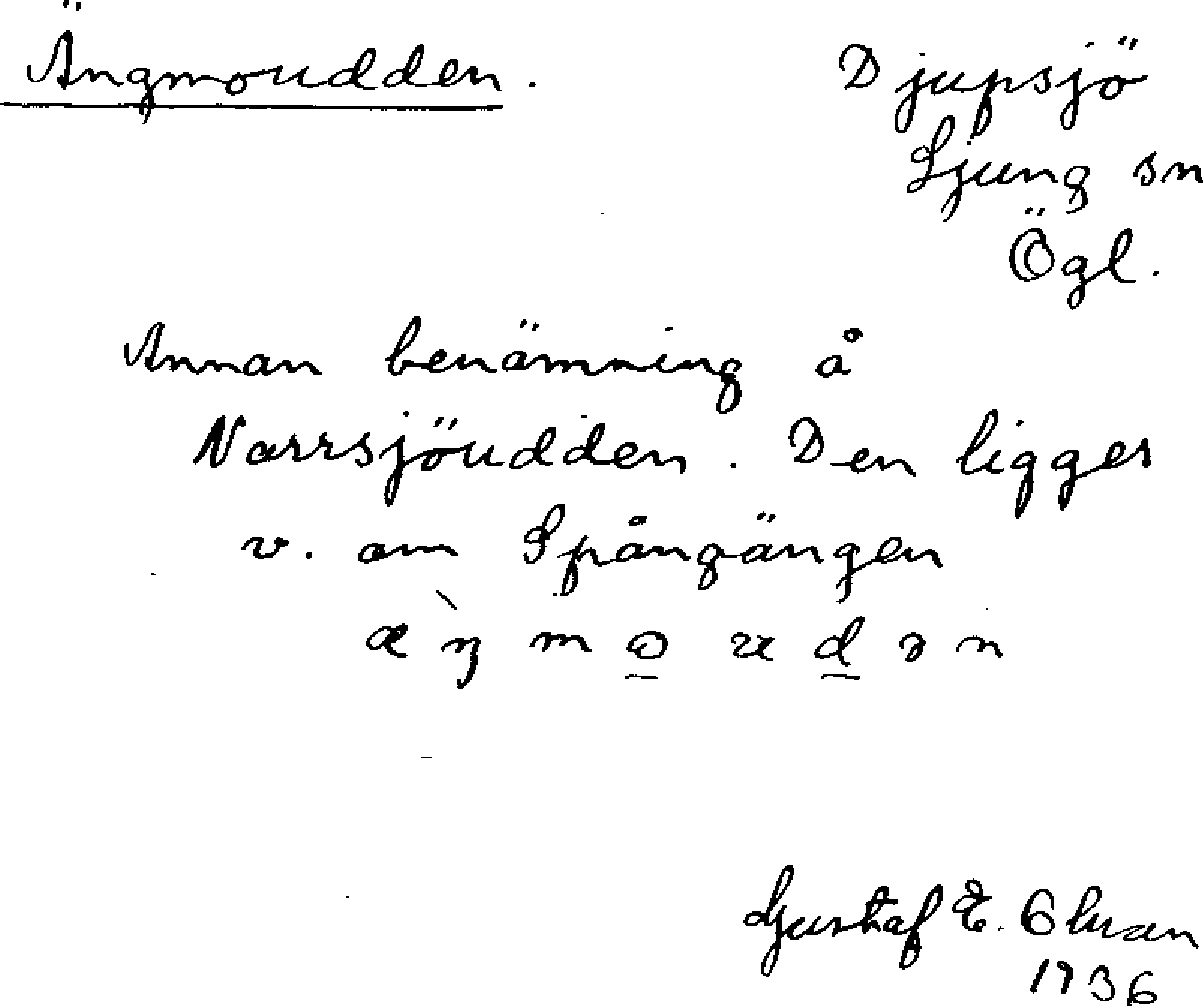 Ängmoudden.
Djupsjö
Ljung sn
Ögl.
Annan benämning å
Norrsjöudden. Den ligger
v. om Spångängen
Gustaf E.
1936